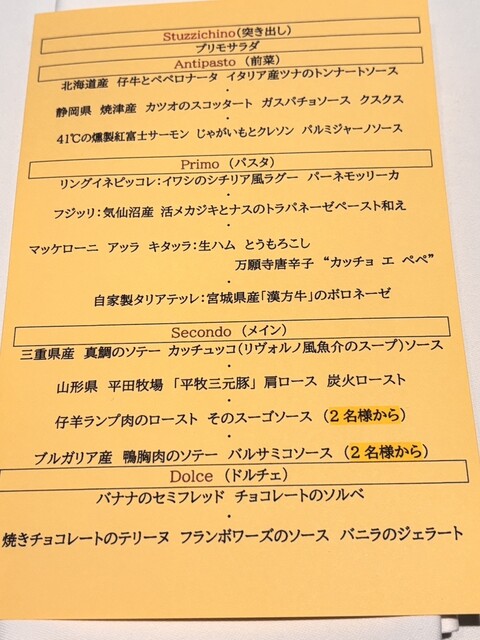 Stuzzichino(突き出し)
プリモサラダ
Antipasto (前菜)
北海道産 仔牛とペペロナータ イタリア産ツナのトンナートソース
・
静岡県 焼津産 カツオのスコッタート ガスパチョソース クスクス
・
41℃の燻製紅富士サーモン じゃがいもとクレソン パルミジャーノソース
Primo (パスタ)
リングイネピッコレ:イワシのシチリア風ラグー パーネモッリーカ
・
フジッリ:気仙沼産 活メカジキとナスのトラパネーゼペースト和え
・
マッケローニ アッラ キタッラ:生ハム とうもろこし
万願寺唐辛子 “カッチョ エ ペペ”
・
自家製タリアテッレ:宮城県産「漢方牛」のボロネーゼ
Secondo (メイン)
三重県産 真鯛のソテー カッチュッコ(リヴォルノ風魚介のスープ)ソース
・
山形県 平田牧場 「平牧三元豚」 肩ロース 炭火ロースト
・
仔羊ランプ肉のロースト そのスーゴソース (2名様から)
・
ブルガリア産 鴨胸肉のソテー バルサミコソース (2名様から)
Dolce (ドルチェ)
バナナのセミフレッド チョコレートのソルベ
・
焼きチョコレートのテリーヌ フランボワーズのソース バニラのジェラート